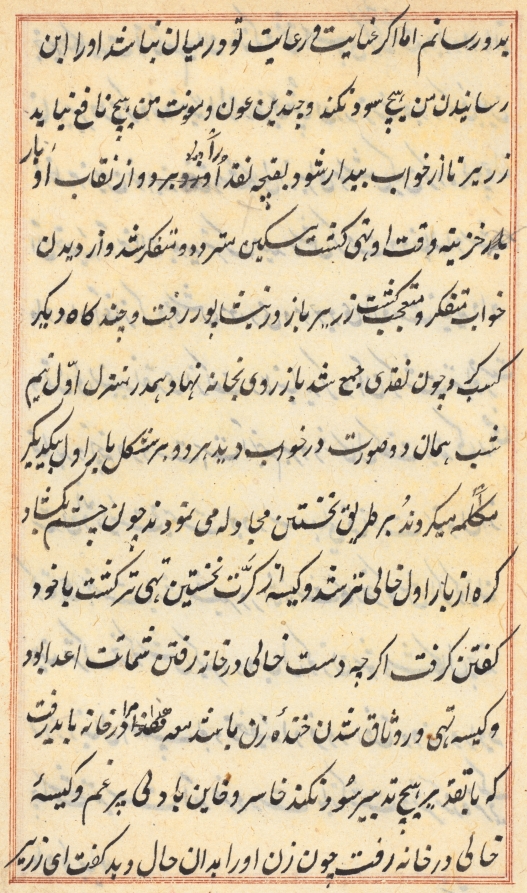 بدو رسانم اما اکر عنایت و رعایت تو در میان نباشد اورا این
رسانیدن من هیچ سود نکند و چندین عون و مونت من هیچ نافع نیاید
زریر تا از خواب بیدار شود بقچه نقد او را دزد برد و از نقاب او بار
خزینه وقت او تهی کشت مسکین متردد و متفکر شد و از دیدن
خواب متفکر و متعجب کشت زریر باز در نیشاپور رفت و چند کاه دیکر
کسب کرد و چون نقدی جمع شد باز روی بخانه نهاد و هم در منزل اول نیم
شب همان دو صورت در خواب دید هر دو بر شکل بار اول بیکدیکر
مکالمه میکردند و بر طریق نخستین مجادله می نمودند چون چشم بکشاد
کره از بار اول خالی تر شد و کیسه از کرّت نخستین تهی تر کشت با خود
کفتن کرفت اکر چه دست خالی در خانه رفتن شماتت اعدا بود
و کیسه تهی در وثاق شدن خندهٔ زن باشد معهذا مرا در خانه باید رفت
که با تقدیر هیچ تدبیر سود نکند خاسر و خاین با دلی پر غم و کیسهٔ
خالی در خانه رفت چون زن اورا بدان حال دید کفت ای زریر